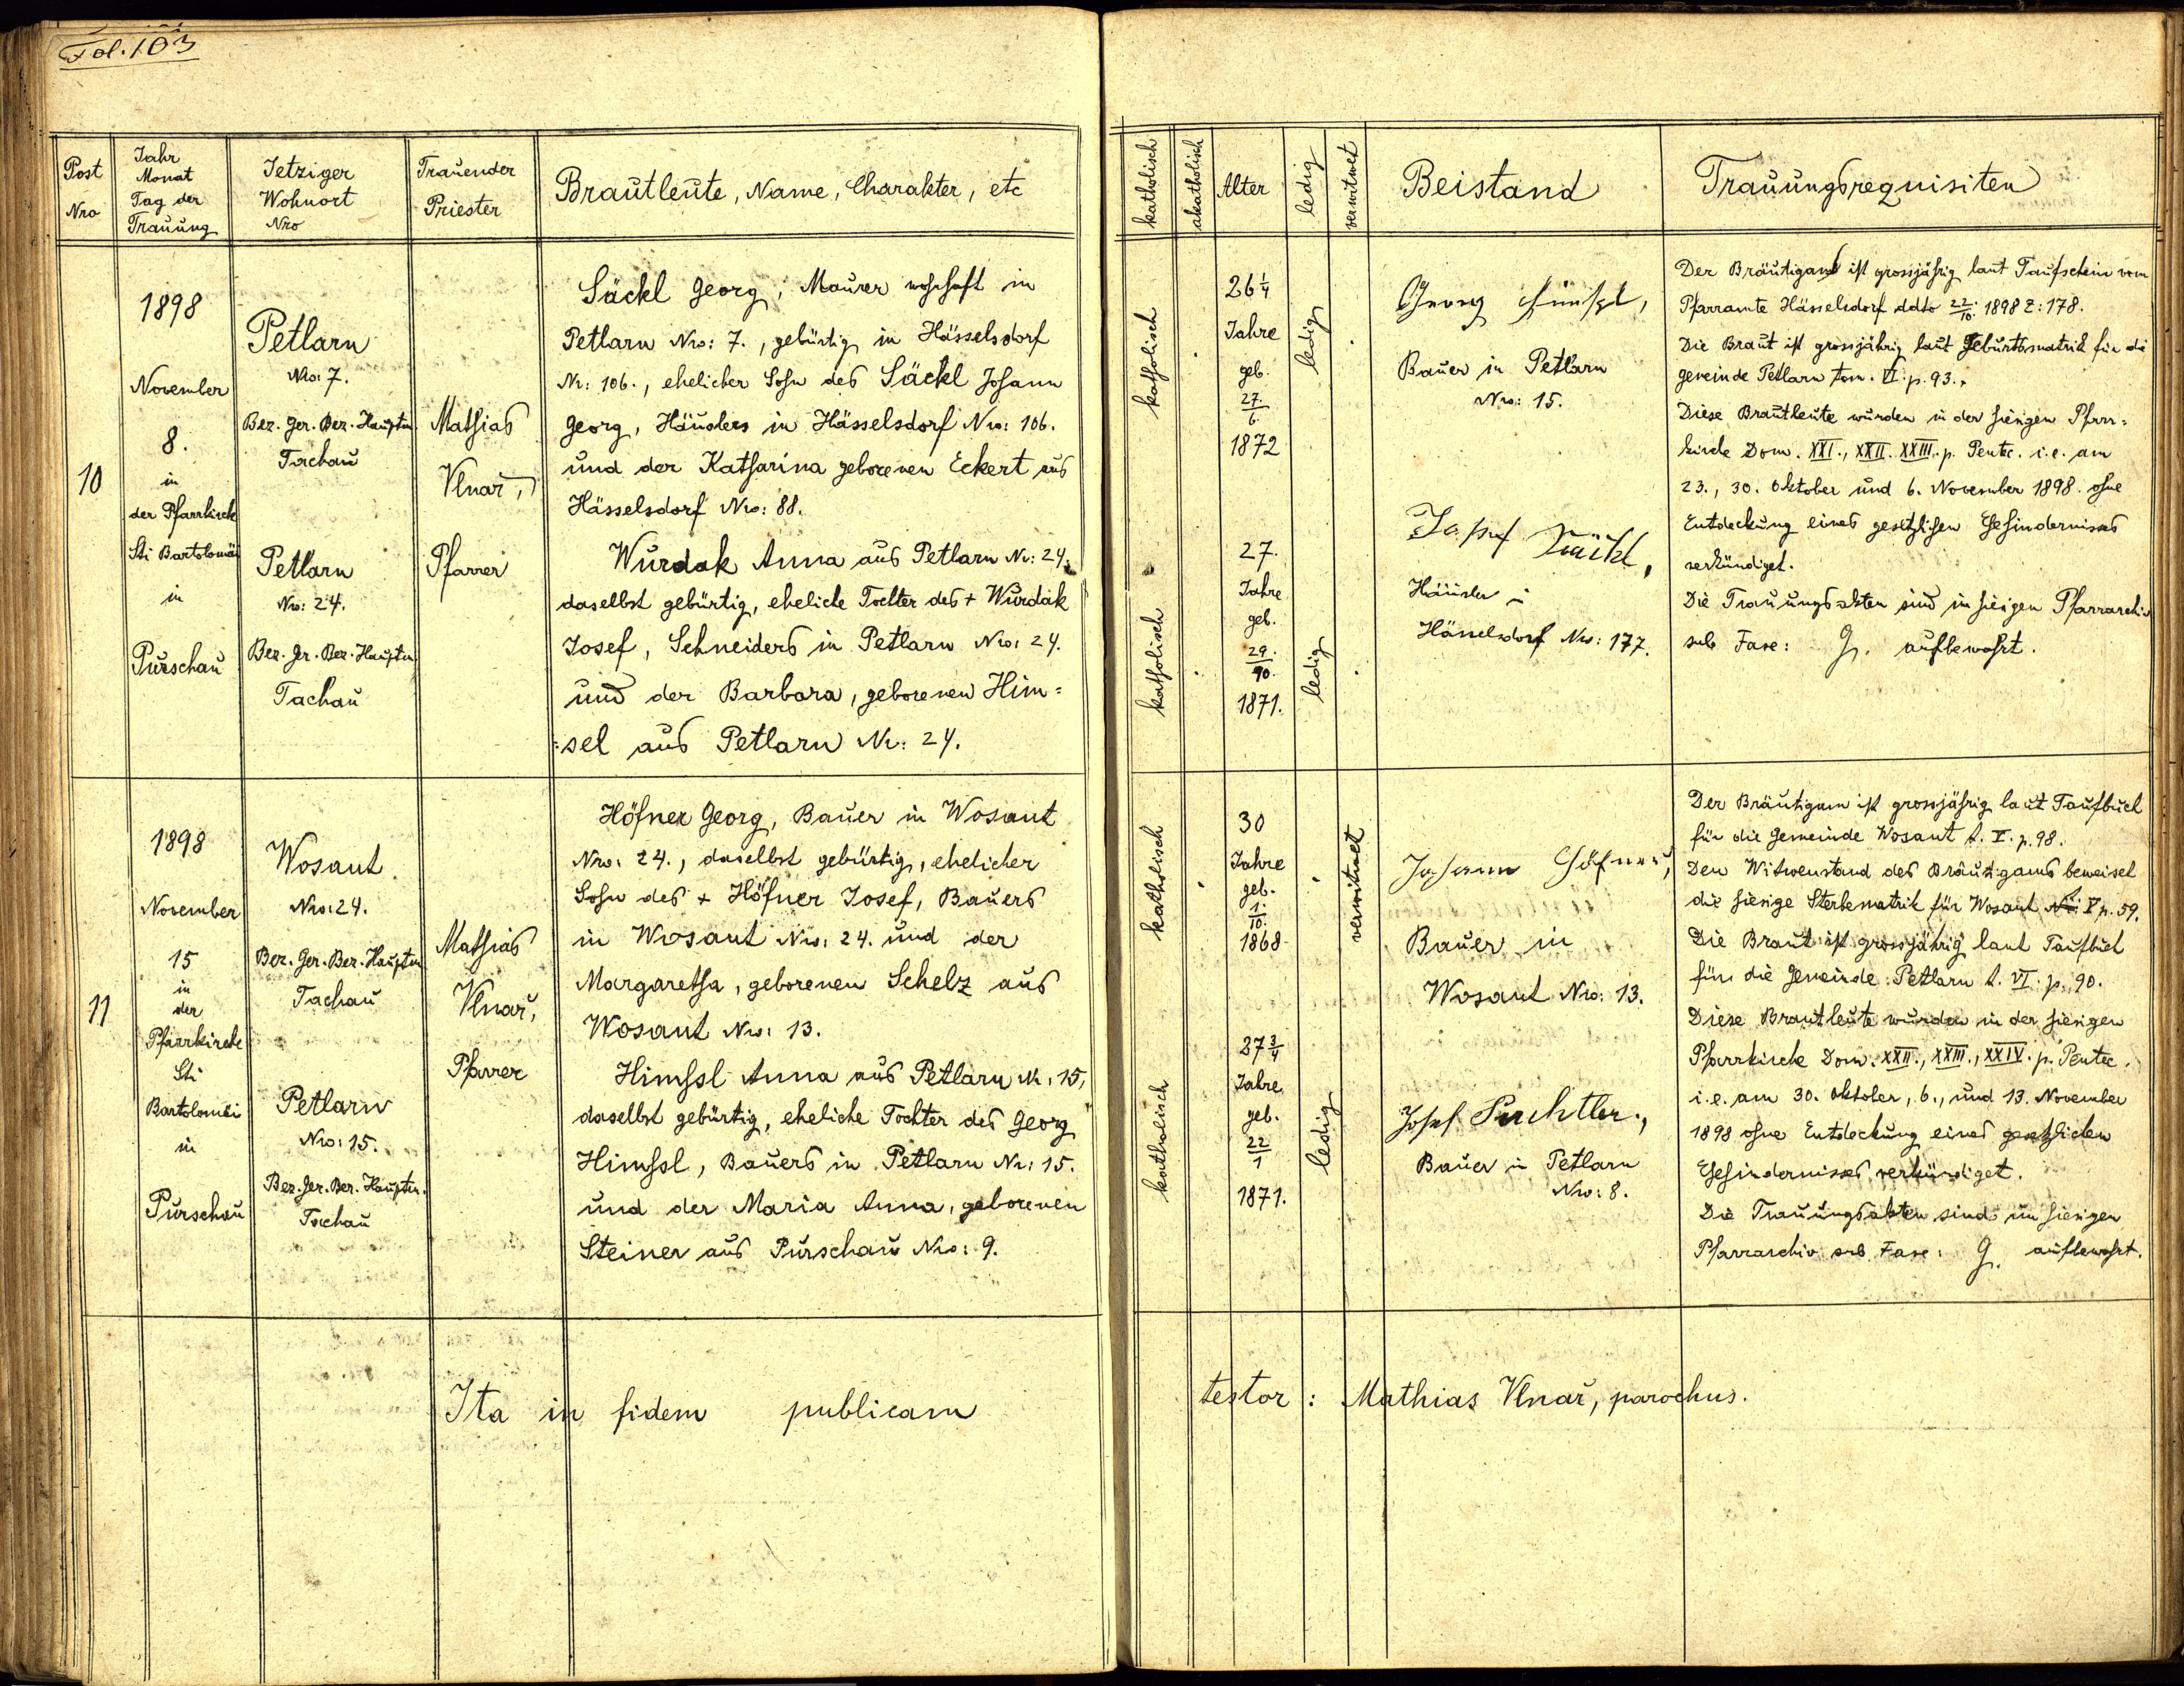 Fol. 103
Post
Nro
Jahr
Monat
Tag der
Trauung
Jetziger
Wohnort
Nro
Trauender
Priester
Brautleute, Name, Charakter, etc
katholisch
akatholisch
Alter
ledig
verwitwet
Beistand
Trauungsrequisiten
10
1898
November
8.
in
der Pfarrkirche
Sti Bartolomäi
in
Purschau
Petlarn
Nro: 7.
Bez. Ger. Bez. Hauptm
Tachau
Petlarn
Nro: 24.
Bez. Ger. Bez. Hauptm
Tachau
Mathias
Vlnař,
Pfarrer
Säckl Georg, Maurer wohnhaft in
Petlarn Nro: 7., gebürtig in Hässelsdorf
Nr: 106., ehelicher Sohn des Säckl Johann
Georg, Häuslers in Hässelsdorf Nro: 106.
und der Katharina geborenen Eckert aus
Hässelsdorf Nro: 88.
Wurdak Anna aus Petlarn Nr: 24.
daselbst gebürtig, eheliche Tochter des + Wurdak
Josef, Schneiders in Petlarn Nro: 24.
und der Barbara, geborenen Him=
=sel aus Petlarn Nr: 24.
katholisch
26 1/4
Jahre
geb.
27./6.
1872
ledig
Georg Himsl,
Bauer in Petlarn
Nro: 15.
katholisch
27.
Jahre
geb.
29./10.
1871.
ledig
Josef Säckl,
Häusler in
Hässelsdorf Nro: 177.
Der Bräutigam ist grossjährig laut Taufschein vom
Pfarramte Hässelsdorf ddto 22./10. 1898 Z: 178.
Die Braut ist grossjährig laut Geburtsmatrik für die
Gemeinde Petlarn tom. VI. p. 93.
Diese Brautleute wurden in der hiesigen Pfarr=
kirche Dom. XXI., XXII. XXIII. p. Pentec. i.e. am
23., 30. Oktober und 6. November 1898. ohne
Entdeckung eines gesetzlichen Ehehindernisses
verkündiget.
Die Trauungsakten sind im hiesigen Pfarrarchiv
sub Fasc: G. aufbewahrt.
11
1898
November
15
in
der
Pfarrkirche
Sti
Bartolomäi
in
Purschau
Wosant.
Nro: 24.
Bez. Ger. Bez. Hauptm
Tachau
Petlarn
Nro: 15.
Bez. Ger. Bez. Hauptm.
Tachau
Mathias
Vlnař,
Pfarrer
Höfner Georg, Bauer in Wosant
Nro: 24., daselbst gebürtig, ehelicher
Sohn des + Höfner Josef, Bauers
in Wosant Nro: 24. und der
Margaretha, geborenen Schelz aus
Wosant Nro: 13.
Himssl Anna aus Petlarn Nr: 15,
daselbst gebürtig, eheliche Tochter des Georg
Himssl, Bauers in Petlarn Nr: 15.
und der Maria Anna, geborenen
Steiner aus Purschau Nro: 9.
katholisch
30
Jahre
geb.
1./10.
1868
verwitwet
Johann Höfner,
Bauer in
Wosant Nro: 13.
katholisch
27 3/4
Jahre
geb.
22/1
1871.
ledig
Josef Puchtler,
Bauer in Petlarn
Nro: 8.
Der Bräutigam ist grossjährig laut Taufbuch
für die Gemeinde Wosant t. V. p. 98.
Den Witwenstand des Bräutigams beweiset
die hiesige Sterbematrik für Wosant V p. 59.
Die Braut ist grossjährig laut Taufbuch
für die Gemeinde Petlarn t. VI. p. 90.
Diese Brautleute wurden in der hiesigen
Pfarrkirche Dom. XXII., XXIII., XXIV. p. Pentec.
i.e. am 30. Oktober, 6., und 13. November
1898 ohne Entdeckung eines gesetzlichen
Ehehindernisses verkündiget.
Die Trauungsakten sind im hiesigen
Pfarrarchiv sub Fasc: G. aufbewahrt.
Ita in fidem publicam testor: Mathias Vlnař, parochus.